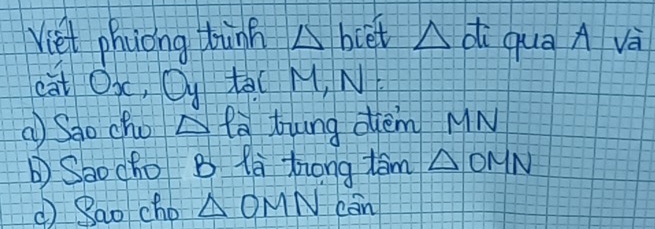 Viết phương trình Δ biết Δ đi qua A và
cắt Ox, Oy tại M, N:
a) Sao cho Δ là trung điểm MN
b) Sao cho B là trọng tâm Δ OMN
c) Sao cho Δ OMN cân